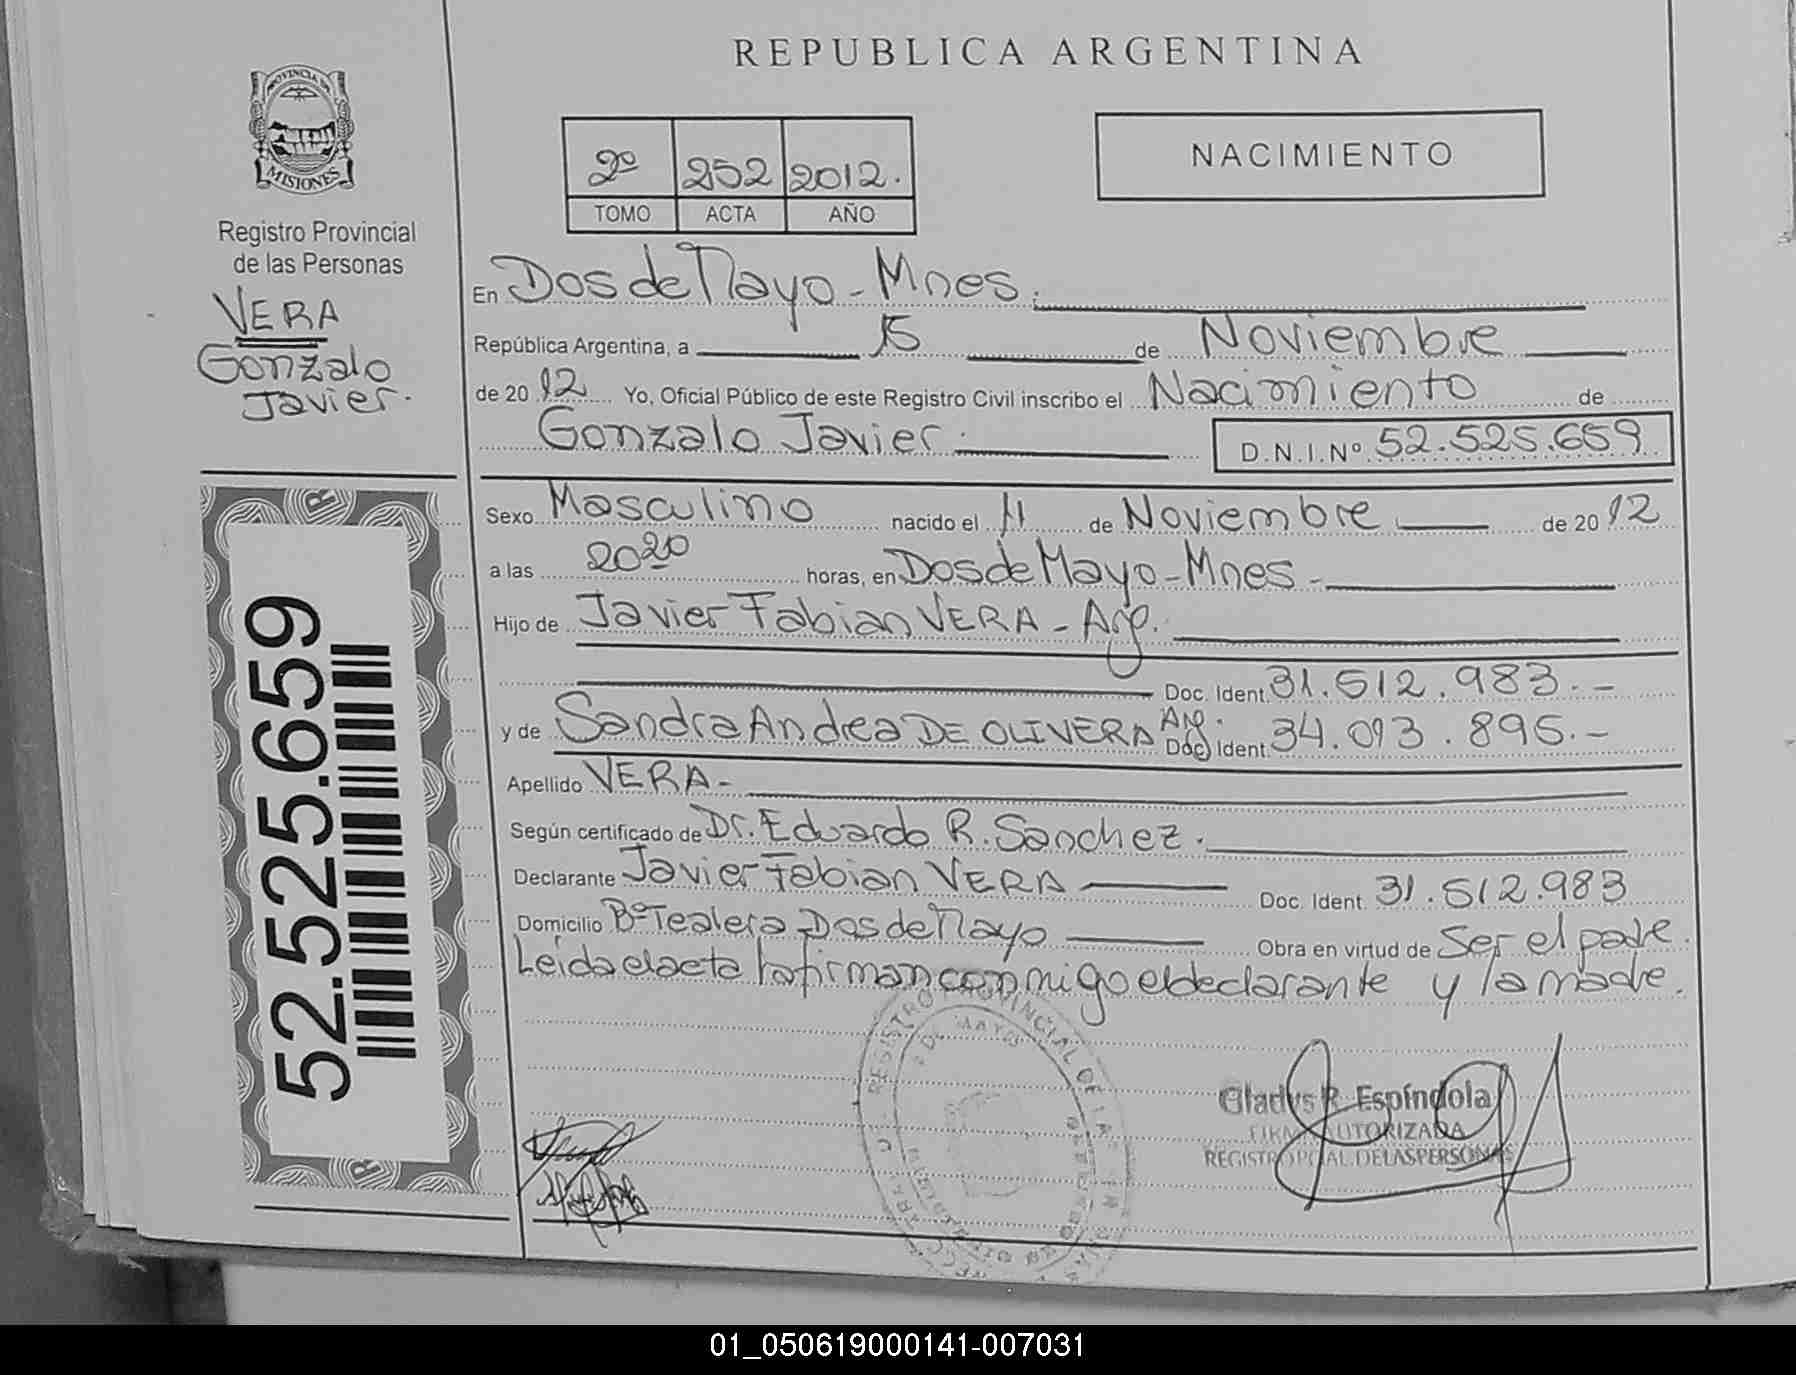 REPUBLICA ARGENTINA
PROVINCIA DE
MISIONES
Registro Provincial
de las Personas
VERA
Gonzalo
Javier.
2º 252 2012.
TOMO ACTA AÑO
NACIMIENTO
En Dos de Mayo - Mnes.
República Argentina, a 15 de Noviembre
de 2012 Yo, Oficial Público de este Registro Civil inscribo el Nacimiento de
Gonzalo Javier. D.N.I.Nº 52.525.659
Sexo Masculino nacido el 11 de Noviembre de 2012
a las 20 20 horas, en Dos de Mayo - Mnes -
Hijo de Javier Fabian VERA - Arg.
Doc. Ident. 31.512.983.-
y de Sandra Andrea DE OLIVERA Arg. Doc. Ident. 34.013.895.-
Apellido VERA -
Según certificado de Dr. Eduardo R. Sanchez.
Declarante Javier Fabian VERA Doc. Ident. 31.512.983
Domicilio Bº Tealera - Dos de Mayo Obra en virtud de Ser el padre.
Leída el acta la firman conmigo el declarante y la madre.
52.525.659
REGISTRO PROVINCIAL DE LAS
2 DE MAYO
MINISTERIO DE GOBIERNO
Gladys R. Espíndola
FIRMA AUTORIZADA
REGISTRO PCIAL. DE LAS PERSONAS
01_050619000141-007031